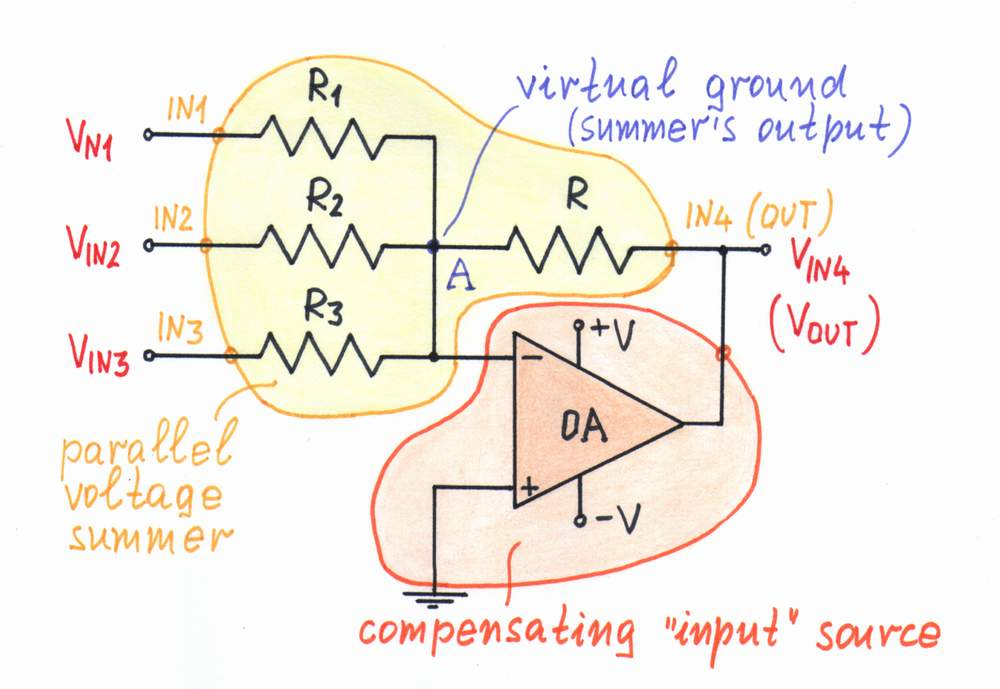 R1
IN1
VN1
virtual ground
(summer's output)
R2
R
IN2
VIN2
A
IN4 (OUT)
VIN4
(VOUT)
R3
IN3
VIN3
+V
−
OA
+
−V
parallel
voltage
summer
compensating "input" source